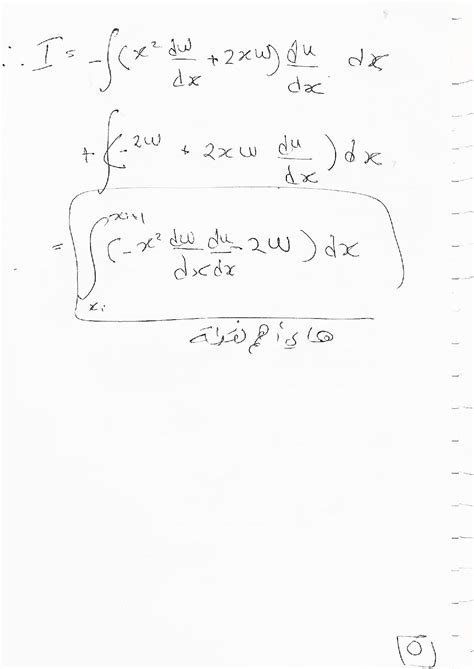 ∴ I = -∫(x² dw/dx + 2xw) du/dx dx
+ ∫(-2w + 2xw du/dx) dx
= ∫_{xᵢ}^{xᵢ₊₁} (-x² dw/dx du/dx - 2w) dx
هاي أهم نقطة
0